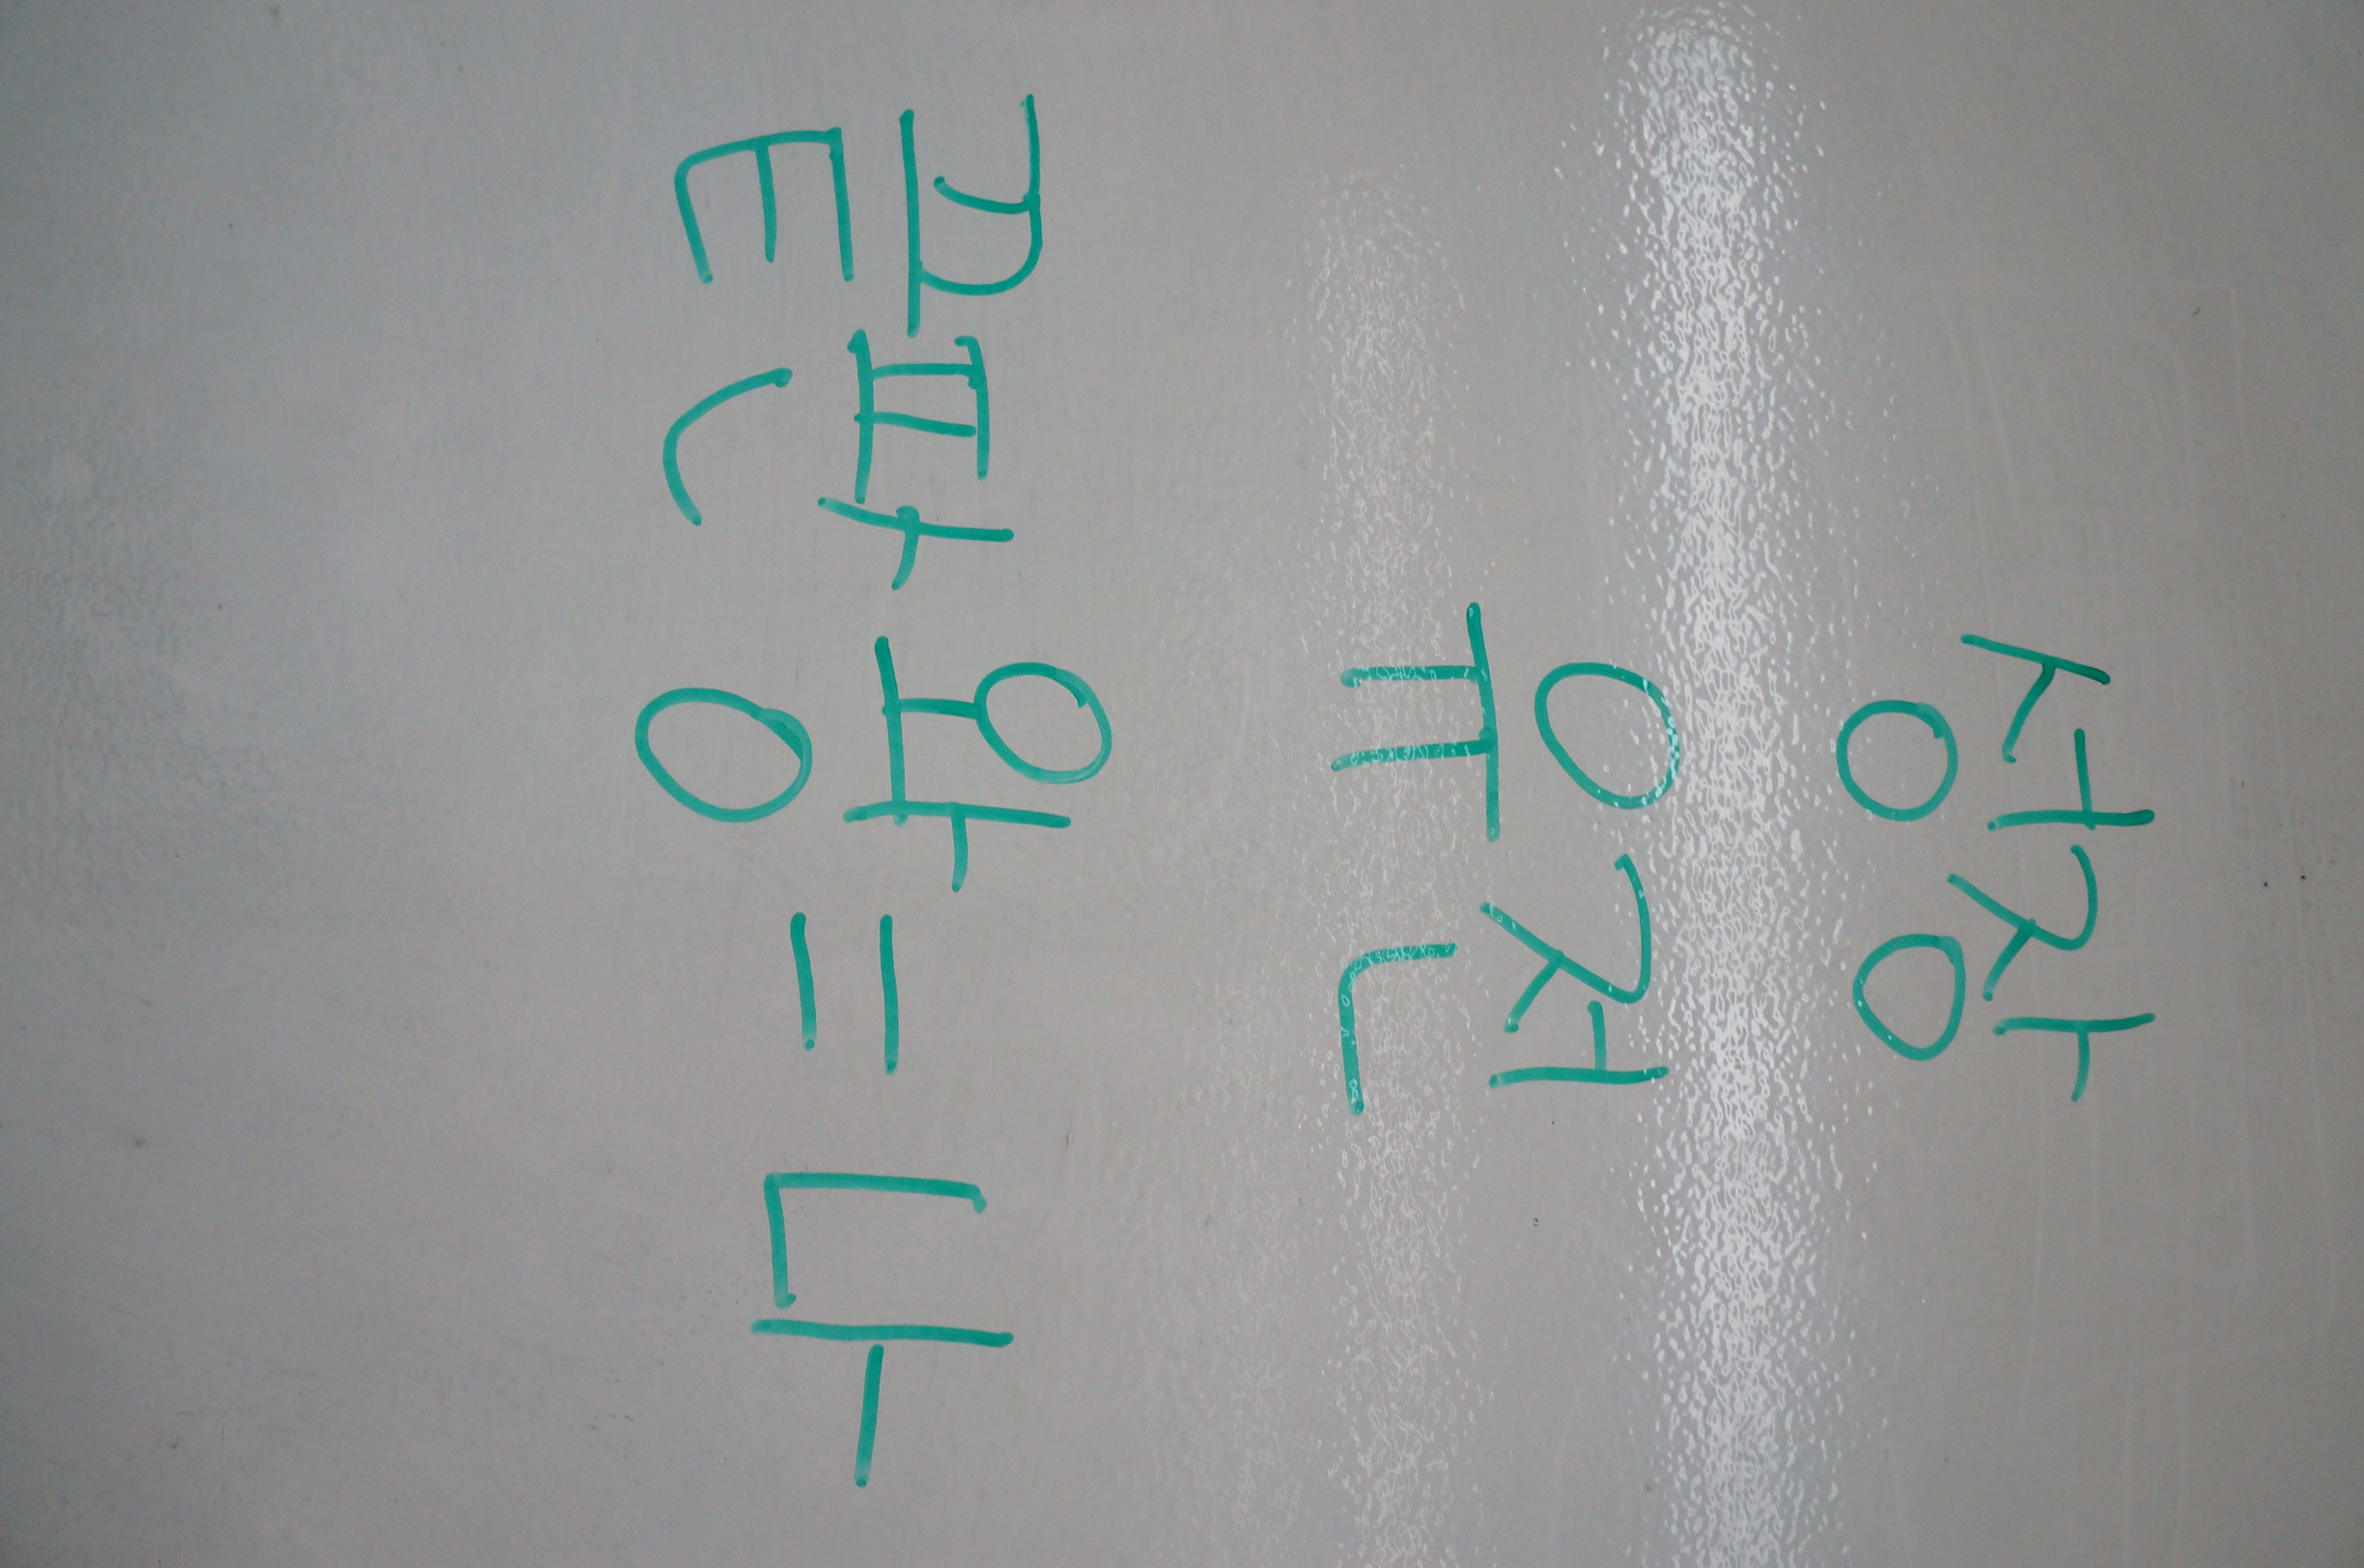 성장
유전
끝판왕=나